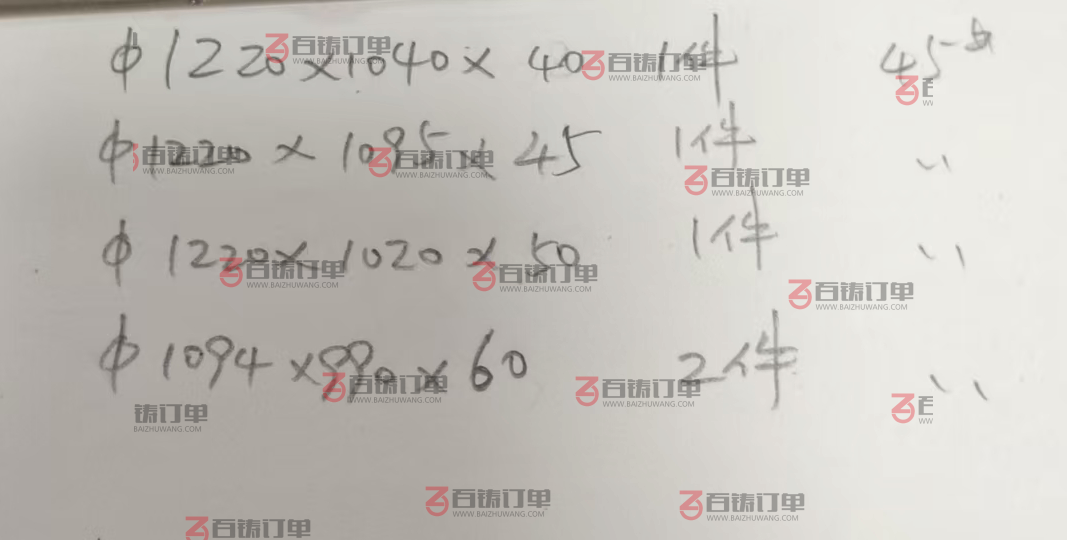 φ1220×1040×40 1件 45#
φ1220×1095×45 1件 〃
φ1220×1020×50 1件 〃
φ1094×990×60 2件 〃
百铸订单
WWW.BAIZHUWANG.COM